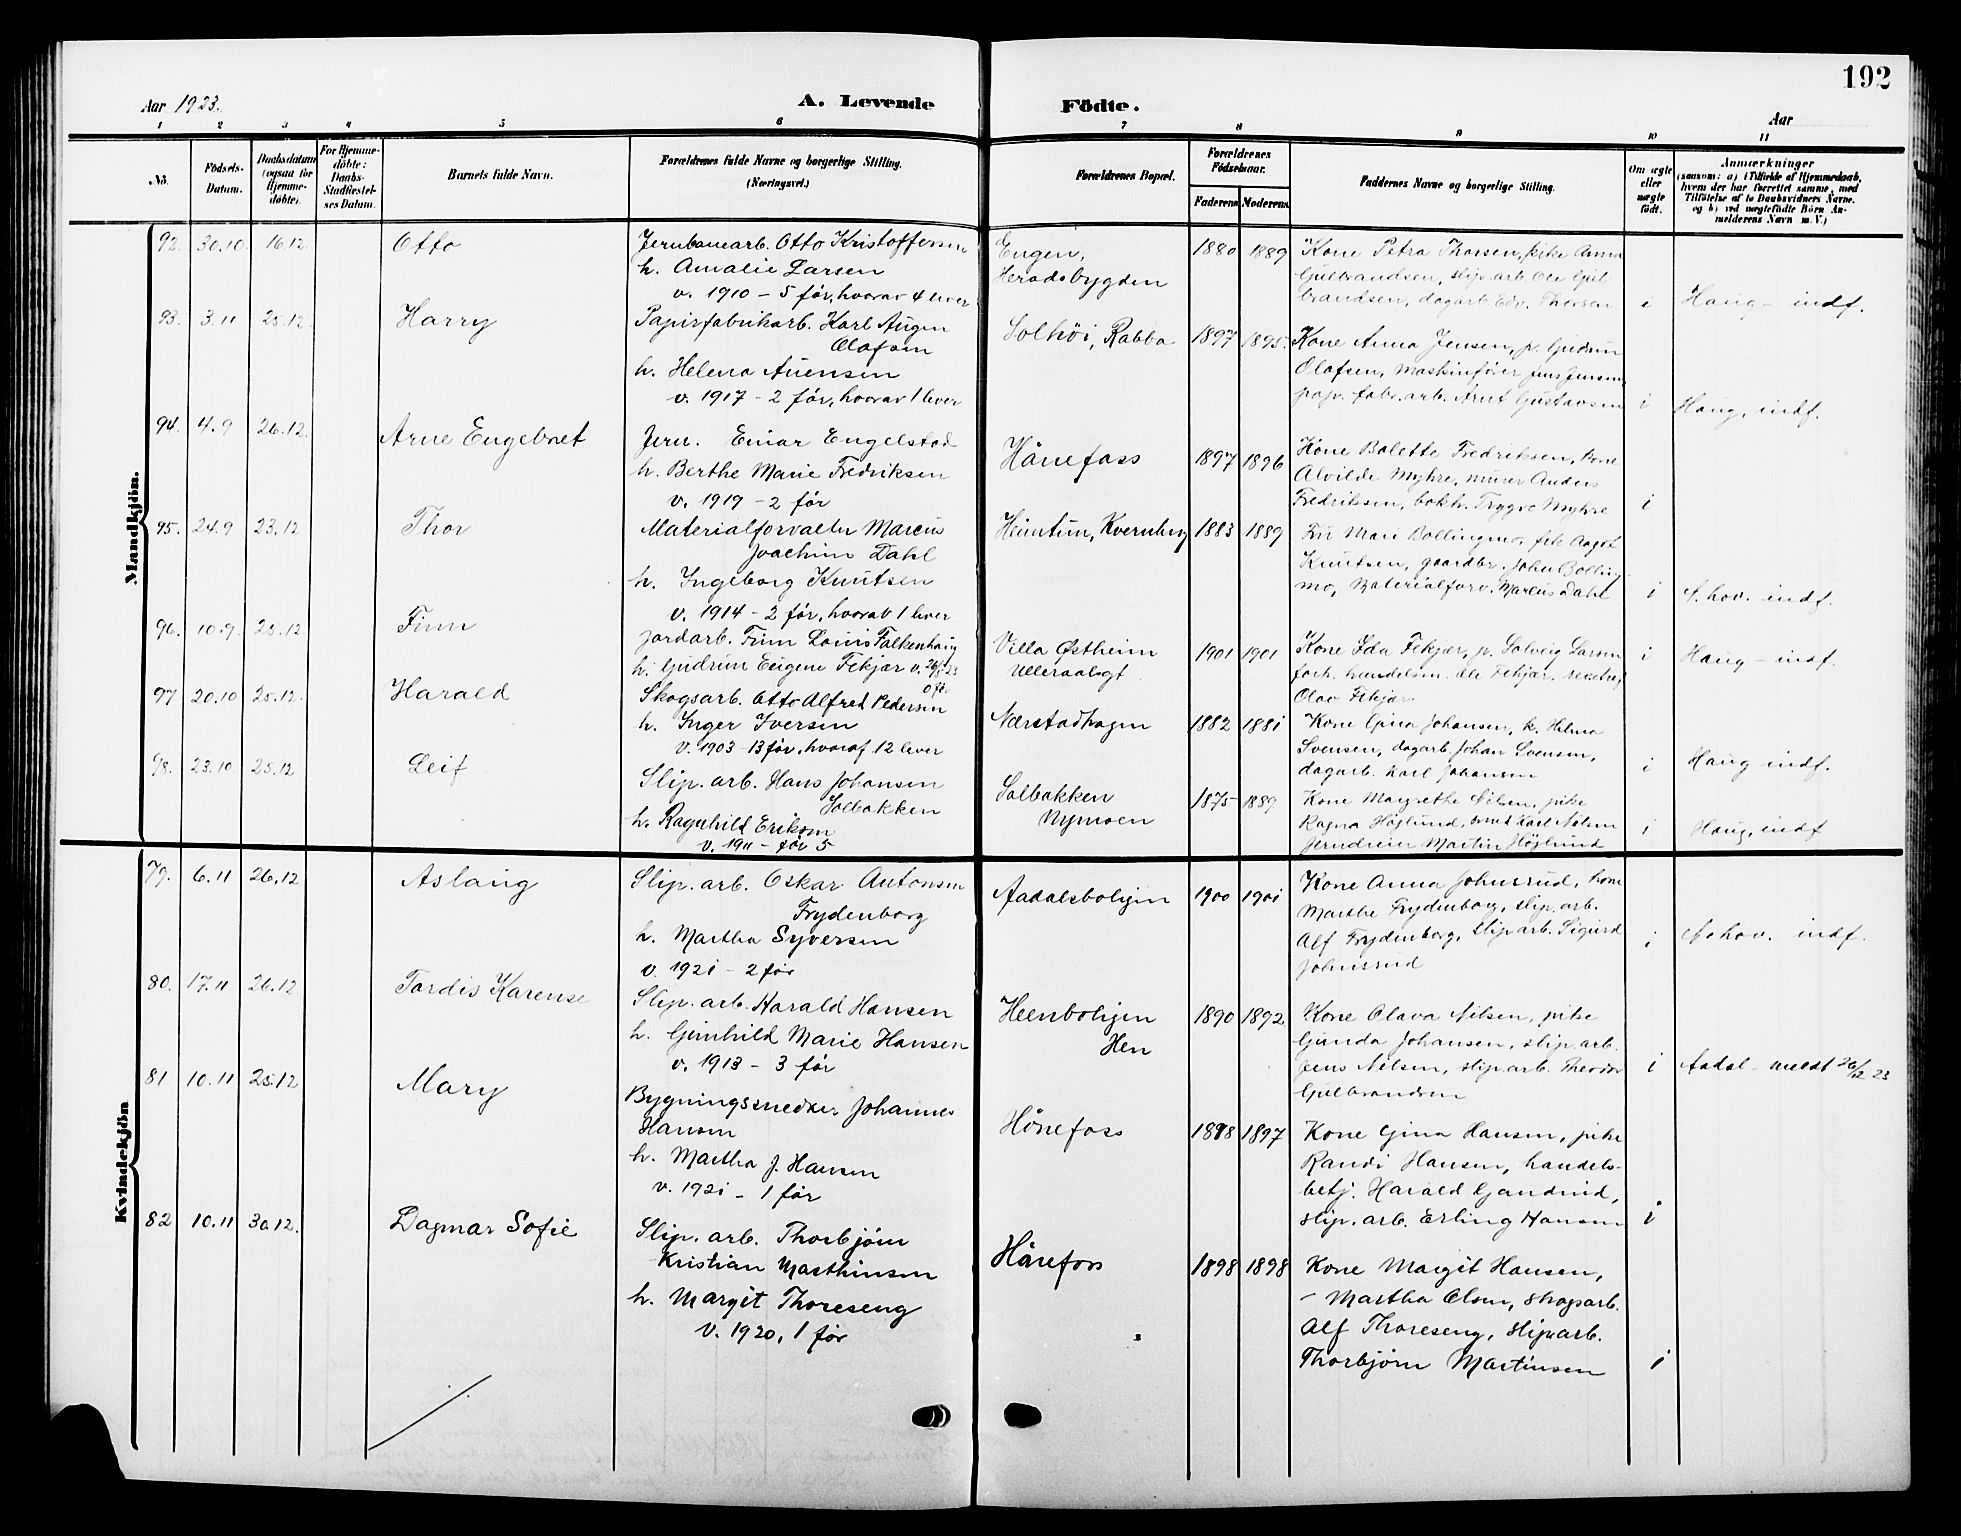 192
Aar 1923.
A. Levende Födte.
Aar
1 2 3 4 5 6 7 8 9 10 11
No.
Födsels-Datum.
Daabsdatum (ogsaa for Hjemme-döbte).
For Hjemme-döbte: Daabs-Stadfæstel-ses Datum.
Barnets fulde Navn.
Forældrenes fulde Navne og borgerlige Stilling. (Næringsvei.)
Forældrenes Bopæl.
Forældrenes Födselsaar.
Faderens Moderens
Faddernes Navne og borgerlige Stilling.
Om ægte eller uægte født.
Anmærkninger (saasom: a) i Tilfælde af Hjemmedaab, hvem der har forrettet samme, med Tilföielse af to Daabsvidners Navne, og b) ved uægtefödte Börn An-melderens Navn m. V.)
Mandkjön.
92. 30.10 16.12 Otto
Jernbanearb. Otto Kristoffersen
h. Amalie Larsen
v. 1910 - 5 før, hvorav 4 lever
Engen,
Heradsbygden
1880 1889
Kone Petra Thorsen, pike Anna
Gulbrandsen, slip.arb. Ole Gul-
brandsen, dagarb. Edv. Thorsen
i Haug - indf.
93. 3.11 25.12. Harry
Papirfabrikarb. Karl Augen
Olafsen
h. Helena Auensen
v. 1917 - 2 før, hvorav 1 lever
Solhøi, Rabba
1897 1895.
Kone Anna Jensen, p. Gudrun
Olafsen, maskinfører Jens Jensen,
pap. fabr. arb. Arnt Gustavsen
i Haug, indf.
94. 4.9 26.12. Arne Engebret
Jern. Einar Engelstad
h. Berthe Marie Fredriksen
v. 1919 - 2 før
Hønefoss
1897 1896
Kone Bolette Fredriksen, kone
Alvilde Myhre, murer Anders
Fredriksen, bokh. Trygve Myhre
i
95. 24.9 23.12 Thor
Materialforvalter Marcus
Joachim Dahl
h. Ingeborg Knutsen
v. 1914 - 2 før, hvorav 1 lever
Heimtun, Kvernberg
1883 1889
Fru Mari Bollingmo, frk Aagot
Knutsen, gaardbr. John Bolling-
mo, Materialforv. Marcus Dahl
i N. hov. indf.
96. 10.9. 25.12 Finn
Jordarb. Finn Louis Falkenhaug
h. Gudrun Eugene Fekjær v. 26/5 23
0 før
Villa Østheim
Ulleraalsgt
1901 1901
Kone Ida Fekjær, p. Solveig Larsen
forh. handelsm. Ole Fekjær,
Olav Fekjær
i Haug - indf.
97 20.10 25.12. Harald
Skogsarb. Otto Alfred Pedersen
h. Inger Iversen
v. 1903 - 13 før, hvoraf 12 lever
Nærstadhagen
1882 1881
Kone Gina Johansen, k. Helma
Svensen, dagarb. Johan Svensen,
dagarb. Karl Johansen
i Haug indf.
98. 23.10 25.12 Leif
Slip. arb. Hans Johansen
Solbakken
h. Ragnhild Eriksen
v. 1911 - før 5
Solbakken
Nymoen
1875 1889
Kone Margrethe Nilsen, pike
Ragna Höglund, smed Karl Nilsen
jerndreier Martin Höglund
i Haug, indf
Kvindekjön
79. 6.11 26.12 Aslaug
Slip. arb. Oskar Antonsen
Frydenborg
h. Martha Syversen
v. 1921 - 2 før
Aadalsboligen
1900 1901
Kone Anna Johnsrud, kone
Marthe Frydenborg, slip.arb.
Alf Frydenborg, slip arb. Sigurd
Johnsrud
i N. hov. indf.
80. 17.11 26.12 Tordis Karense
Slip. arb. Harald Hansen
h. Gunhild Marie Hansen
v. 1913 - 3 før
Heenboligen
Hen
1890 1892
Kone Olava Nilsen, pike
Gunda Johansen, slip.arb.
Jens Nilsen, slip.arb. Theodor
Gulbrandsen
i Aadal - meldt 26/12 23
81 10.11 25.12 Mary
Bygningssnedker Johannes
Hansen
h. Martha J. Hansen
v. 1921 - 1 før
Hønefoss
1898 1897
Kone Gina Hansen, pike
Randi Hansen, handels-
betj. Harald Gandrud,
slip. arb. Erling Hansen
i
82 10.11 30.12. Dagmar Sofie
Slip. arb. Thorbjørn
Kristian Marthinsen
h. Margit Thoreseng
v. 1920, 1 før
Hønefoss
1898 1898
Kone Margit Hansen,
- Martha Olsen, skogarb.
Alf Thoreseng, slip arb.
Thorbjørn Martinsen
i